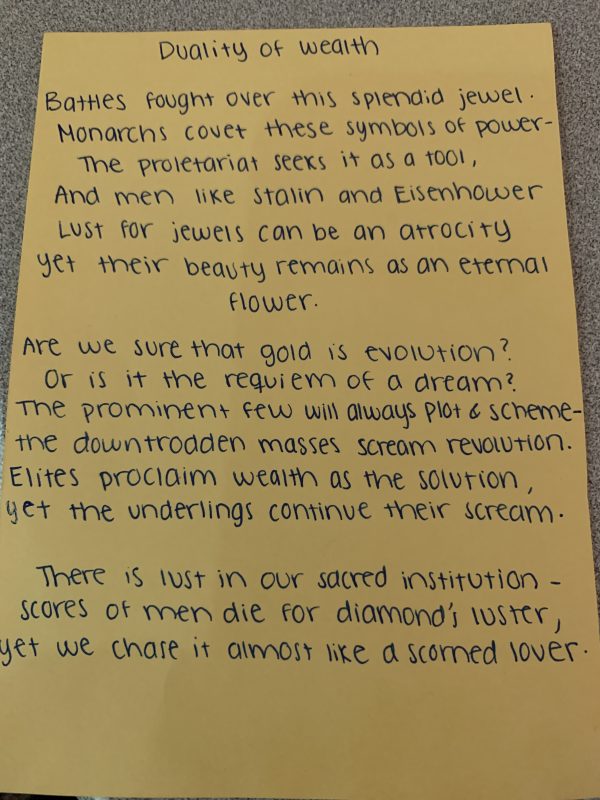 Duality of wealth
Battles fought over this splendid jewel.
Monarchs covet these symbols of power-
The proletariat seeks it as a tool,
And men like Stalin and Eisenhower
Lust for jewels can be an atrocity
yet their beauty remains as an eternal
flower.
Are we sure that gold is evolution?
Or is it the requiem of a dream?
The prominent few will always plot & scheme-
the downtrodden masses scream revolution.
Elites proclaim wealth as the solution,
yet the underlings continue their scream.
There is lust in our sacred institution -
scores of men die for diamond's luster,
yet we chase it almost like a scorned lover.